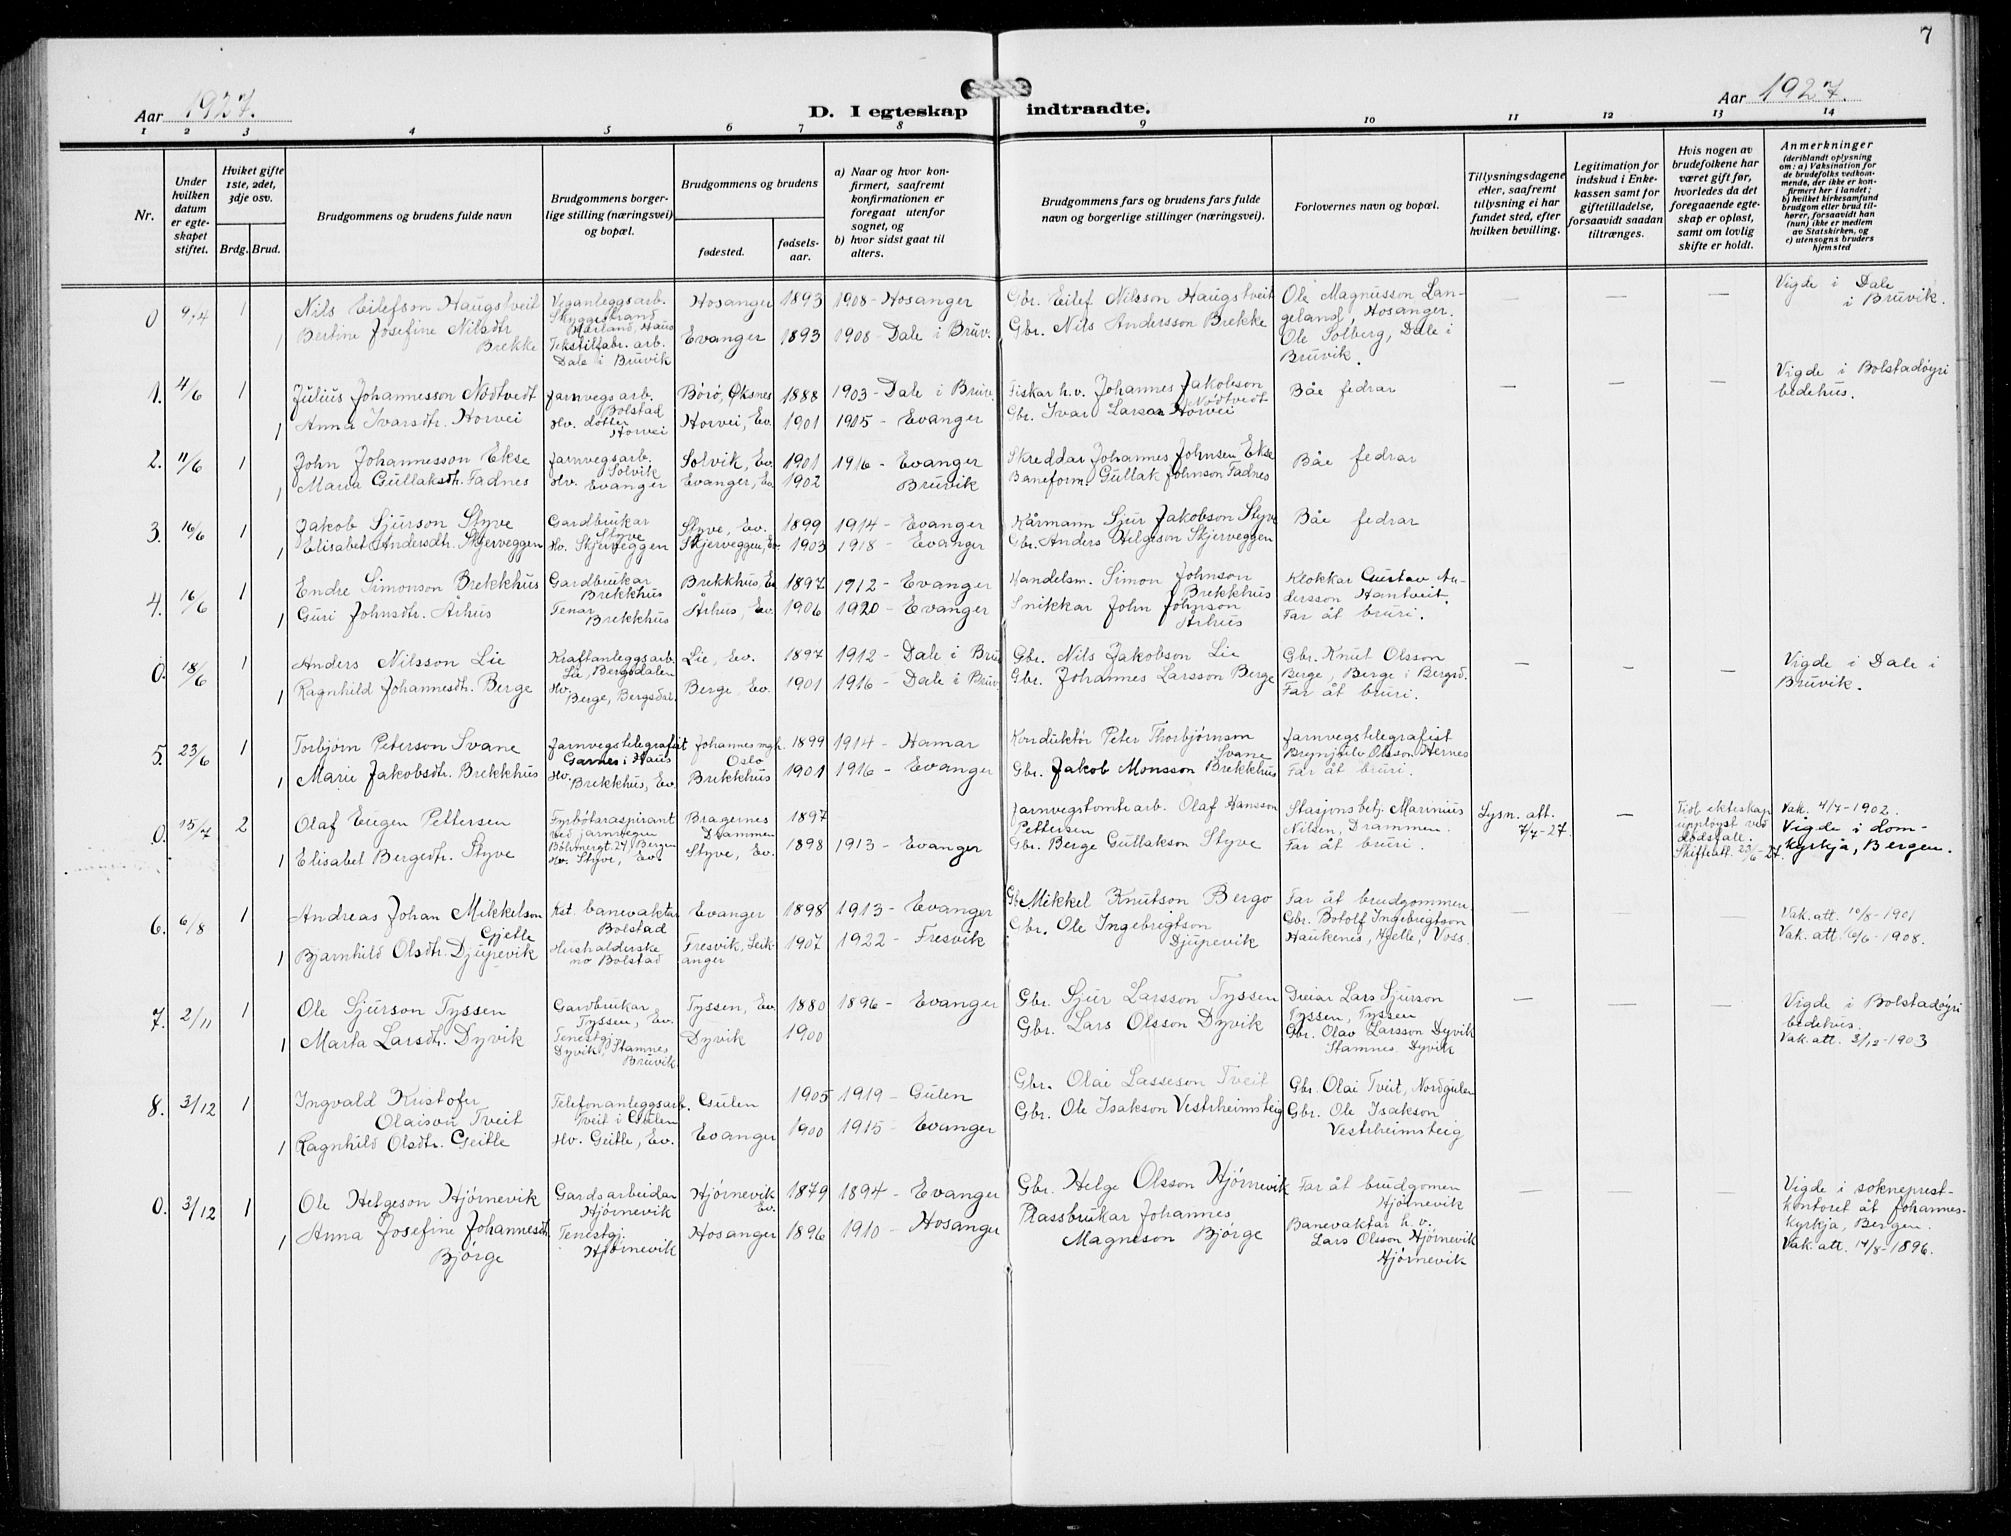 7
Aar 1927.
D. I egteskap indtraadte.
Aar 1927.
1 2 3 4 5 6 7 8 9 10 11 12 13 14
Nr.
Under hvilken datum er egteskapet stiftet.
Hviket gifte 1ste, 2det, 3dje osv.
Brdg. Brud.
Brudgommens og brudens fulde navn
Brudgommens borgerlige stilling (næringsvei) og bopæl.
Brudgommens og brudens
fødested.
fødselsaar.
a) Naar og hvor konfirmert, saafremt konfirmationen er foregaat utenfor sognet, og
b) hvor sidst gaat til alters.
Brudgommens fars og brudens fars fulde navn og borgerlige stillinger (næringsvei).
Forlovernes navn og bopæl.
Tillysningsdagene eller, saafremt tillysning ei har fundet sted, efter hvilken bevilling.
Legitimation for indskud i Enkekassen samt for giftetilladelse, forsaavidt saadan tiltrænges.
Hvis nogen av brudefolkene har været gift før, hvorledes da det foregaaende egteskap er opløst, samt om lovlig skifte er holdt.
Anmerkninger (deriblandt oplysning om: a) Vaksination for de brudefolks vedkommende, der ikke er konfirmert her i landet; b) hvilket kirkesamfund brudgom eller brud tilhører, forsaavidt han (hun) ikke er medlem av Statskirken, og c) utensogns bruders hjemsted
0 9/4 1 Nils Eilefson Haugstveit Veganleggsarb. Skyggestrand Hosanger 1893 1908 - Hosanger Gbr. Eilef Nilsson Haugstveit Ole Magnusson Langeland, Hosanger. — — — Vigde i Dale i Bruvik.
1 Bertine Josefine Nilsdtr Brekke Tekstilfabr. arb. Dale i Bruvik Evanger 1893 1908 - Dale i Bruv. Gbr. Nils Andersson Brekke Ole Solberg, Dale i Bruvik.
1. 4/6 1 Julius Johannesson Nødtvedt Jarnvegsarb. Bolstad Børø, Øksnes 1888 1903 - Dale i Bruv. Fiskar h.v. Johannes Jakobson Nødtvedt Båe fedrar — — — Vigde i Bolstadøyri bedehus.
1 Anna Ivarsdtr. Horvei Hv. dotter Horvei Horvei, Ev. 1901 1915 - Evanger Gbr. Ivar Larsson Horvei
2. 11/6 1 John Johannesson Ekse Jarnvegsarb. Solvik Solvik, Ev. 1901 1916 - Evanger Skreddar Johannes Johnsen Ekse Båe fedrar
1 Maria Gullaksdtr. Fadnes Hv. Evanger Evanger, Ev. 1902 Bruvik Baneform. Gullak Johnson Fadnes
3. 16/6 1 Jakob Sjurson Styve Gardbrukar Styve Styve, Ev. 1899 1914 - Evanger Kårmann Sjur Jakobson Styve Båe fedrar
1 Elisabet Andersdtr. Skjerveggen Hv. Skjerveggen Skjerveggen, Ev. 1903 1918 - Evanger Gbr. Anders Helgeson Skjerveggen
4. 16/6 1 Endre Simonson Brekkhus Gardbrukar Brekkhus Brekkhus, Ev 1897 1912 - Evanger Handelsm. Simon Johnson Brekkhus Klokkar Gustav Andersson Hantveit.
1 Guri Johnsdtr. Århus Tenar Brekkhus Århus, Ev. 1906 1920 - Evanger Snikkar John Johnson Århus Far åt bruri.
0. 18/6 1 Anders Nilsson Lie Kraftanleggsarb. Lie, Bergsdalen Lie, Ev. 1897 1912 - Dale i Bruv Gbr. Nils Jakobson Lie Gbr. Knut Olsson Berge, Berge i Bergsd. — — — Vigde i Dale i Bruvik.
1 Ragnhild Johannesdtr. Berge Hv. Berge, Bergsdal. Berge, Ev. 1901 1916 - Dale i Bruv. Gbr. Johannes Larsson Berge Far åt bruri.
5. 23/6 1 Torbjørn Peterson Svane Jarnvegstelegrafist Garnes i Haus Johannes mgh. Oslo 1899 1914 - Hamar Konduktør Peter Thorbjørnson Svane Jarnvegstelegrafist Brynjulv Olsson Hernes
1 Marie Jakobsdtr. Brekkhus Hv. Brekkhus, Ev. Brekkhus 1901 1916 - Evanger Gbr. Jakob Monsson Brekkhus Far åt bruri.
0. 15/7 2 Olaf Eugen Pettersen Fyrbøtaraspirant ved jarnvegen Bøhmergt. 24 Bergen Bragernes Drammen 1897 Jarnvegstomtearb. Olaf Hansson Pettersen Stasjonsbetj. Marinius Nilsen, Drammen. Lysn. att. 7/7-27. — Fidl. ekteskap uppløyst ved dødsfall. Skifteatt. 23/6-27. Vak. 4/7-1902. Vigde i domkyrkja, Bergen.
1 Elisabet Bergedtr. Styve Hv. Styve, Ev. Styve, Ev. 1898 1913 - Evanger Gbr. Berge Gullakson Styve Far åt bruri.
6. 6/8 1 Andreas Johan Mikkelson Gjelle Kst. banevaktar Bolstad Evanger 1898 1913 - Evanger Gbr. Mikkel Knutson Bergo Far åt brudgommen — — — Vak. att. 10/8-1901
1 Bjarnhild Olsdtr. Djupevik Hushalderske no Bolstad Fresvik, Leikanger 1907 1922 - Fresvik Gbr. Ole Ingebrigtson Djupevik Gbr. Botolf Ingebrigtson Haukenes, Hjelle, Voss. Vak. att. 16/6-1908.
7. 2/11 1 Ole Sjurson Tyssen Gardbrukar Tyssen, Ev. Tyssen, Ev. 1880 1896 - Evanger Gbr. Sjur Larsson Tyssen Dreiar Lars Sjurson Tyssen, Tyssen — — — Vigde i Bolstadøyri bedehus.
1 Marta Larsdtr. Dyvik Tenestgj. Dyvik, Stamnes Bruvik Dyvik 1900 Gbr. Lars Olsson Dyvik Gbr. Olav Larsson Dyvik Stamnes Dyvik Vak. att. 3/12-1903
8. 3/12 1 Ingvald Kristofer Olaison Tveit Telefonanleggsarb. Tveit i Gulen Gulen 1905 1919 - Gulen Gbr. Olai Lasseson Tveit Gbr. Olai Tveit, Nordgulen
1 Ragnhild Olsdtr. Geitle Hv. Geitle, Ev. Evanger 1900 1915 - Evanger Gbr. Ole Isakson Vestrheimsteig Gbr. Ole Isakson Vestrheimsteig
0. 3/12 1 Ole Helgeson Hjørnevik Gardsarbeidar Hjørnevik Hjørnevik Ev. 1879 1894 - Evanger Gbr. Helge Olsson Hjørnevik Far åt brudgomen Hjørnevik — — — Vigde i sokneprestkontoret åt Johanneskyrkja, Bergen.
1 Anna Josefine Johannesdt. Bjørge Tenestgj. Hjørnevik Hosanger 1896 1910 - Hosanger Plassbrukar Johannes Magneson Bjørge Banevaktar h.v. Lars Olsson Hjørnevik Hjørnevik Vak. att. 14/8-1896.